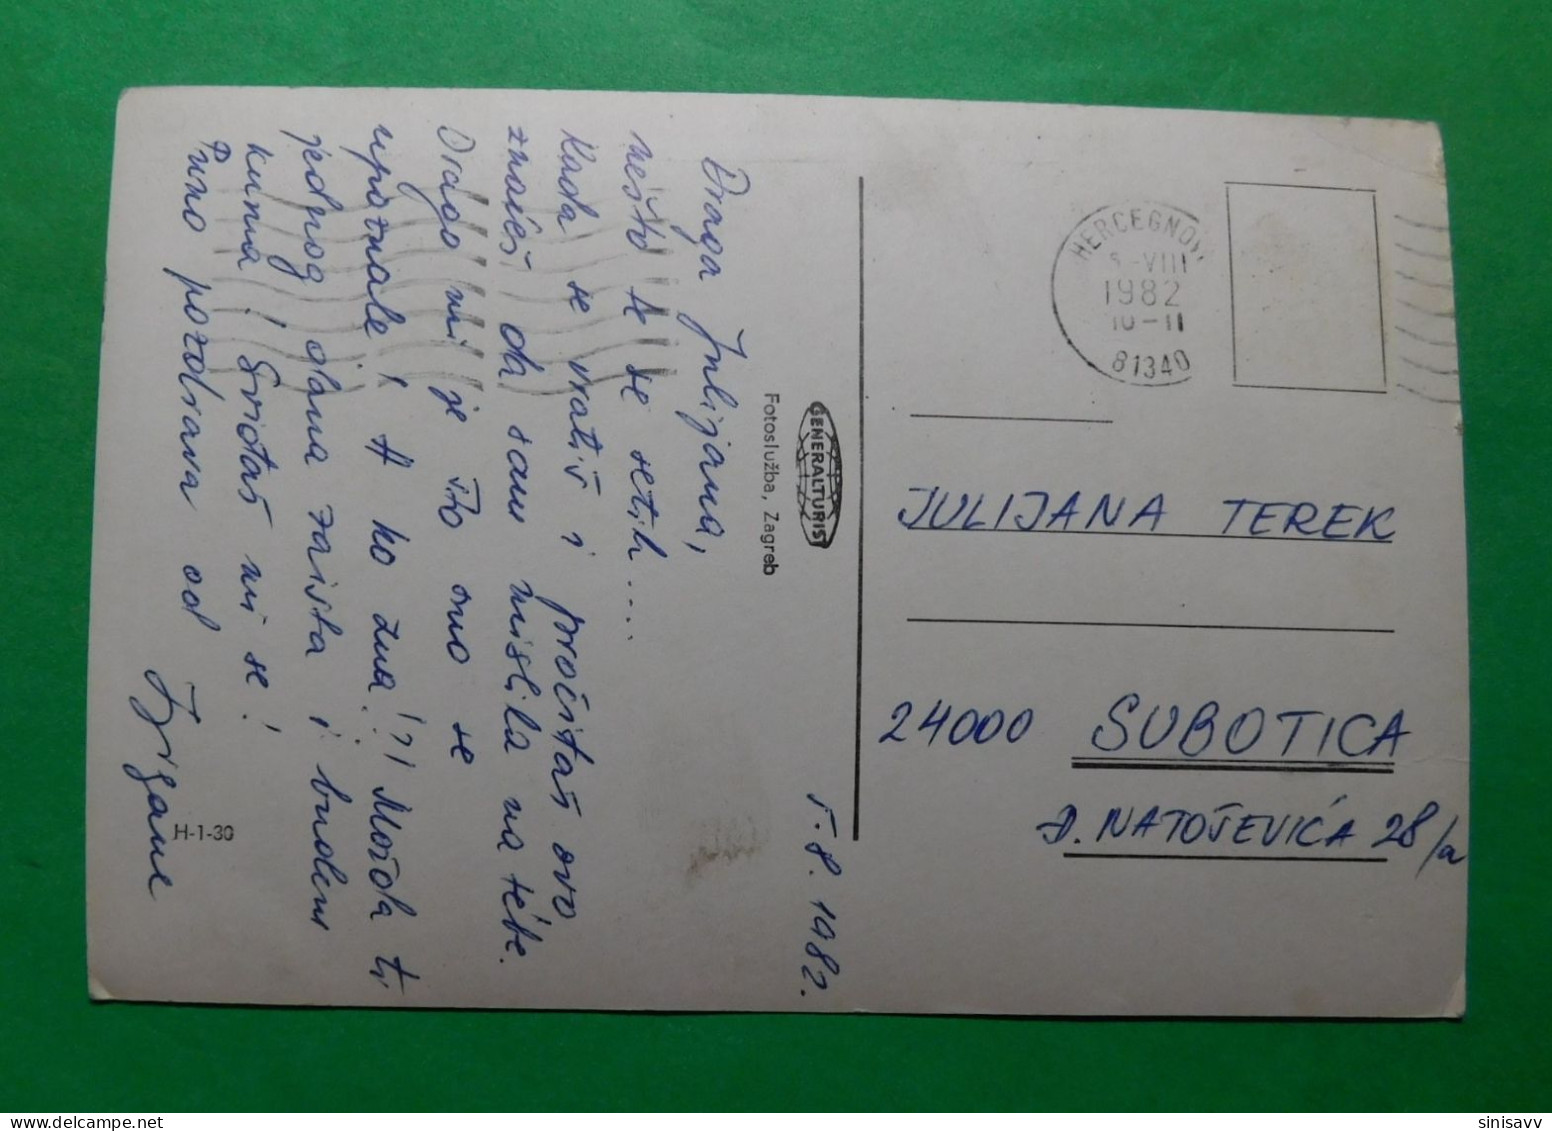 Draga Julijana,
nešto te se setih....
Kada se vratiš i pročitaš ovo
znaćeš da sam mislila na tebe.
Drago mi je što smo se
upoznale i A ko zna!?! Možda ti
jednog dana zaista i budem
kuma! Sviđaš mi se!
Puno pozdrava od
H-1-30
5.8.1982.
GENERALTURIST
Fotoslužba, Zagreb
HERCEGNOVI
5-VIII
1982
10-11
81340
JULIJANA TEREK
24000 SUBOTICA
Đ. NATOŠEVIĆA 28/a
sinisavv